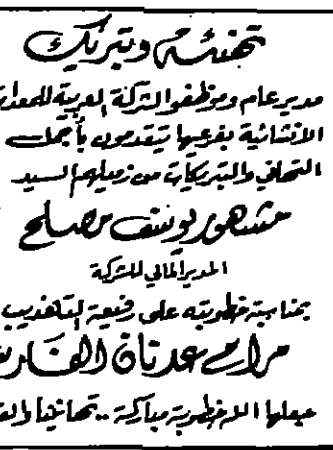 تهنئة وتبريك
مدير عام وموظفو الشركة العربية للمعدات
الانشائية بفرعيها يتقدمون بأجمل
التهاني والتبريكات من زميلهم السيد
مشهور يوسف مصلح
المدير المالي للشركة
بمناسبة خطوبته على رفيعة التهذيب
مرام عدنان الفارس
جعلها الله خطوبة مباركة .. تهانينا